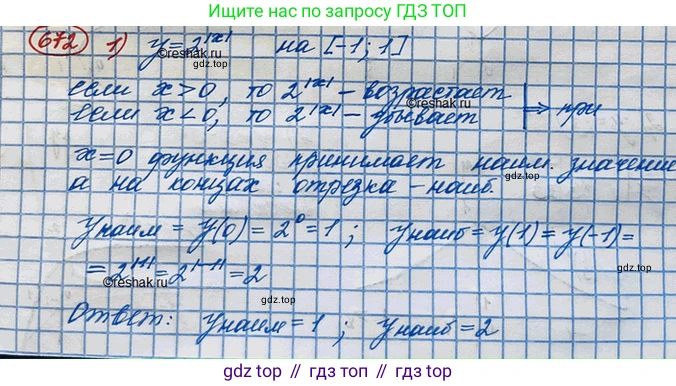 Ищите нас по запросу ГДЗ ТОП
672 1) y = 2^|x| на [-1; 1]
gdz.top
если x > 0, то 2^|x| – возрастает
©reshak.ru
если x < 0, то 2^|x| – убывает ⇒ при
gdz.top
x=0 функция принимает наим. значение
а на концах отрезка – наиб.
gdz.top
yнаим = y(0) = 2^0 = 1 ; yнаиб = y(1) = y(-1) =
= 2^|1| = 2^|-1| = 2
©reshak.ru
gdz.top
Ответ: yнаим = 1 ; yнаиб = 2
gdz.top
gdz top // гдз топ // gdz.top